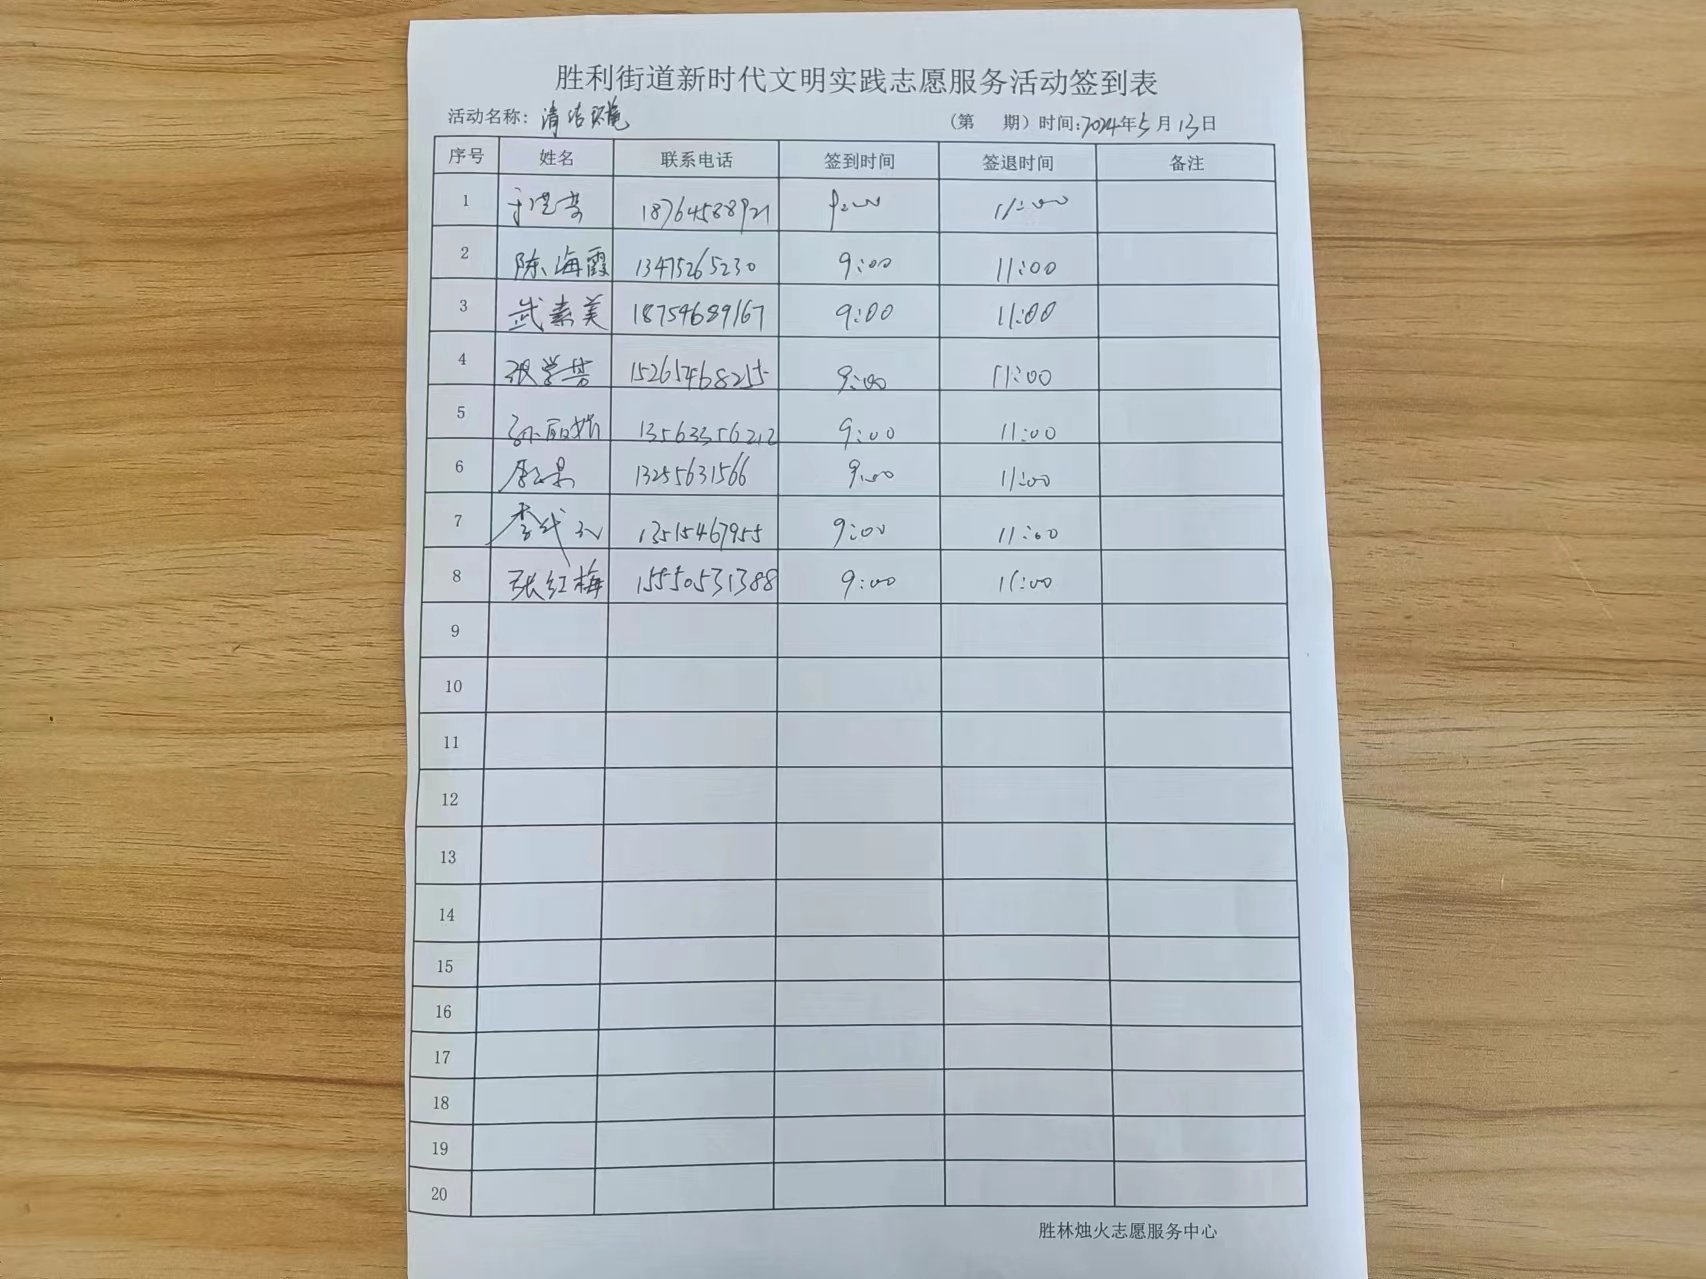 胜利街道新时代文明实践志愿服务活动签到表
活动名称：清洁环境 （第 期）时间：2024年5月13日
序号 姓名 联系电话 签到时间 签退时间 备注
1 18764588921 9:00 11:00
2 陈海霞 13475265230 9:00 11:00
3 武素美 18754689167 9:00 11:00
4 张学芳 15265468255 9:00 11:00
5 孙丽娟 13563356212 9:00 11:00
6 13255631566 9:00 11:00
7 李代 13515467955 9:00 11:00
8 张红梅 15550531388 9:00 11:00
9
10
11
12
13
14
15
16
17
18
19
20
胜林烛火志愿服务中心